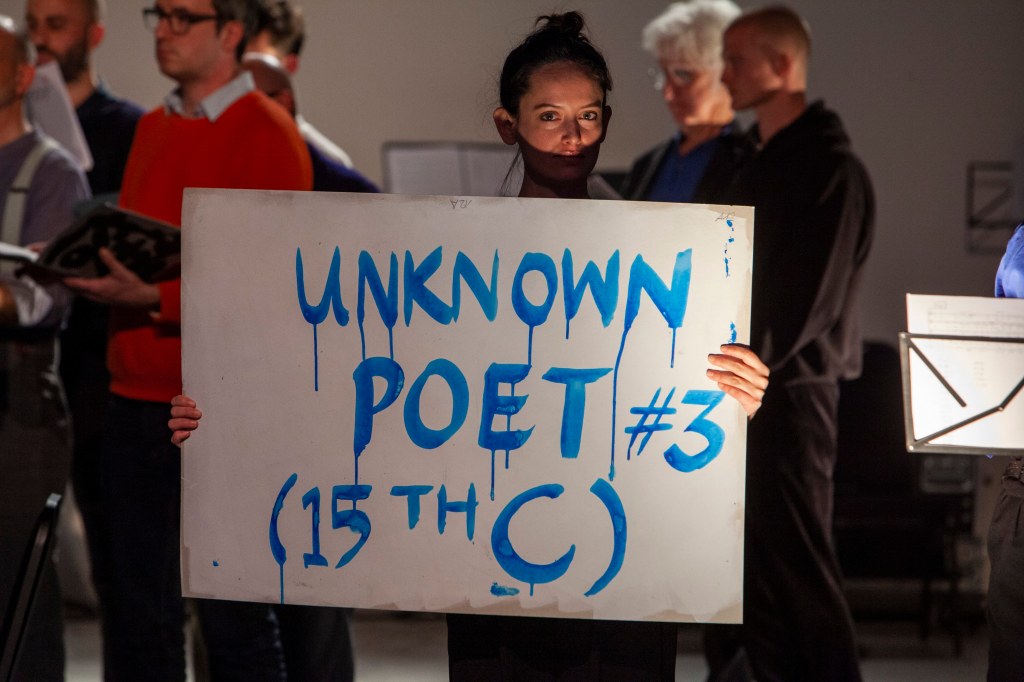 UNKNOWN
POET #3
(15TH C)